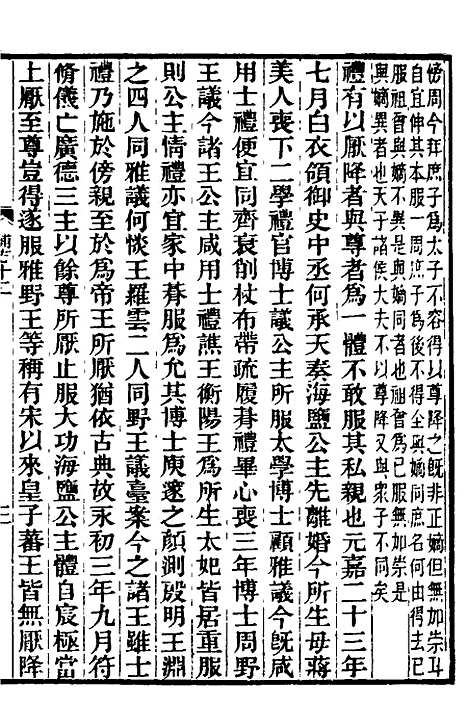 傍周今拜庶子爲太子不容得以尊降之旣非正嫡但無加崇耳
自宜伸其本服一周庶子爲後不得全與嫡同庶名何由得去已
服祖曾與嫡不異是與嫡同者也祖曾爲已服無加崇是
與嫡異者也天子諸侯大夫不以尊降又與衆子不同矣
禮有以厭降者與尊者爲一體不敢服其私親也元嘉二十三年
七月白衣領御史中丞何承天奏海鹽公主先離婚今所生母蔣
美人喪下二學禮官博士議公主所服太學博士顧雅議今旣咸
用士禮便宜同齊衰削杖布帶疏履朞禮畢心喪三年博士周野
王議今諸王公主咸用士禮譙王衡陽王爲所生太妃皆居重服
則公主情禮亦宜家中朞服爲允其博士庾邃之顏測殷明王淵
之四人同雅議何惔王羅雲二人同野王議臺案今之諸王雖士
禮乃施於傍親至於爲帝王所厭猶依古典故永初三年九月符
脩儀亡廣德三主以餘尊所厭止服大功海鹽公主體自宸極當
上厭至尊豈得遂服雅野王等稱有宋以來皇子蕃王皆無厭降